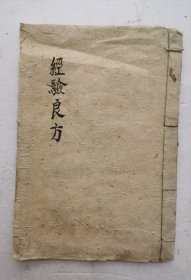 經驗良方